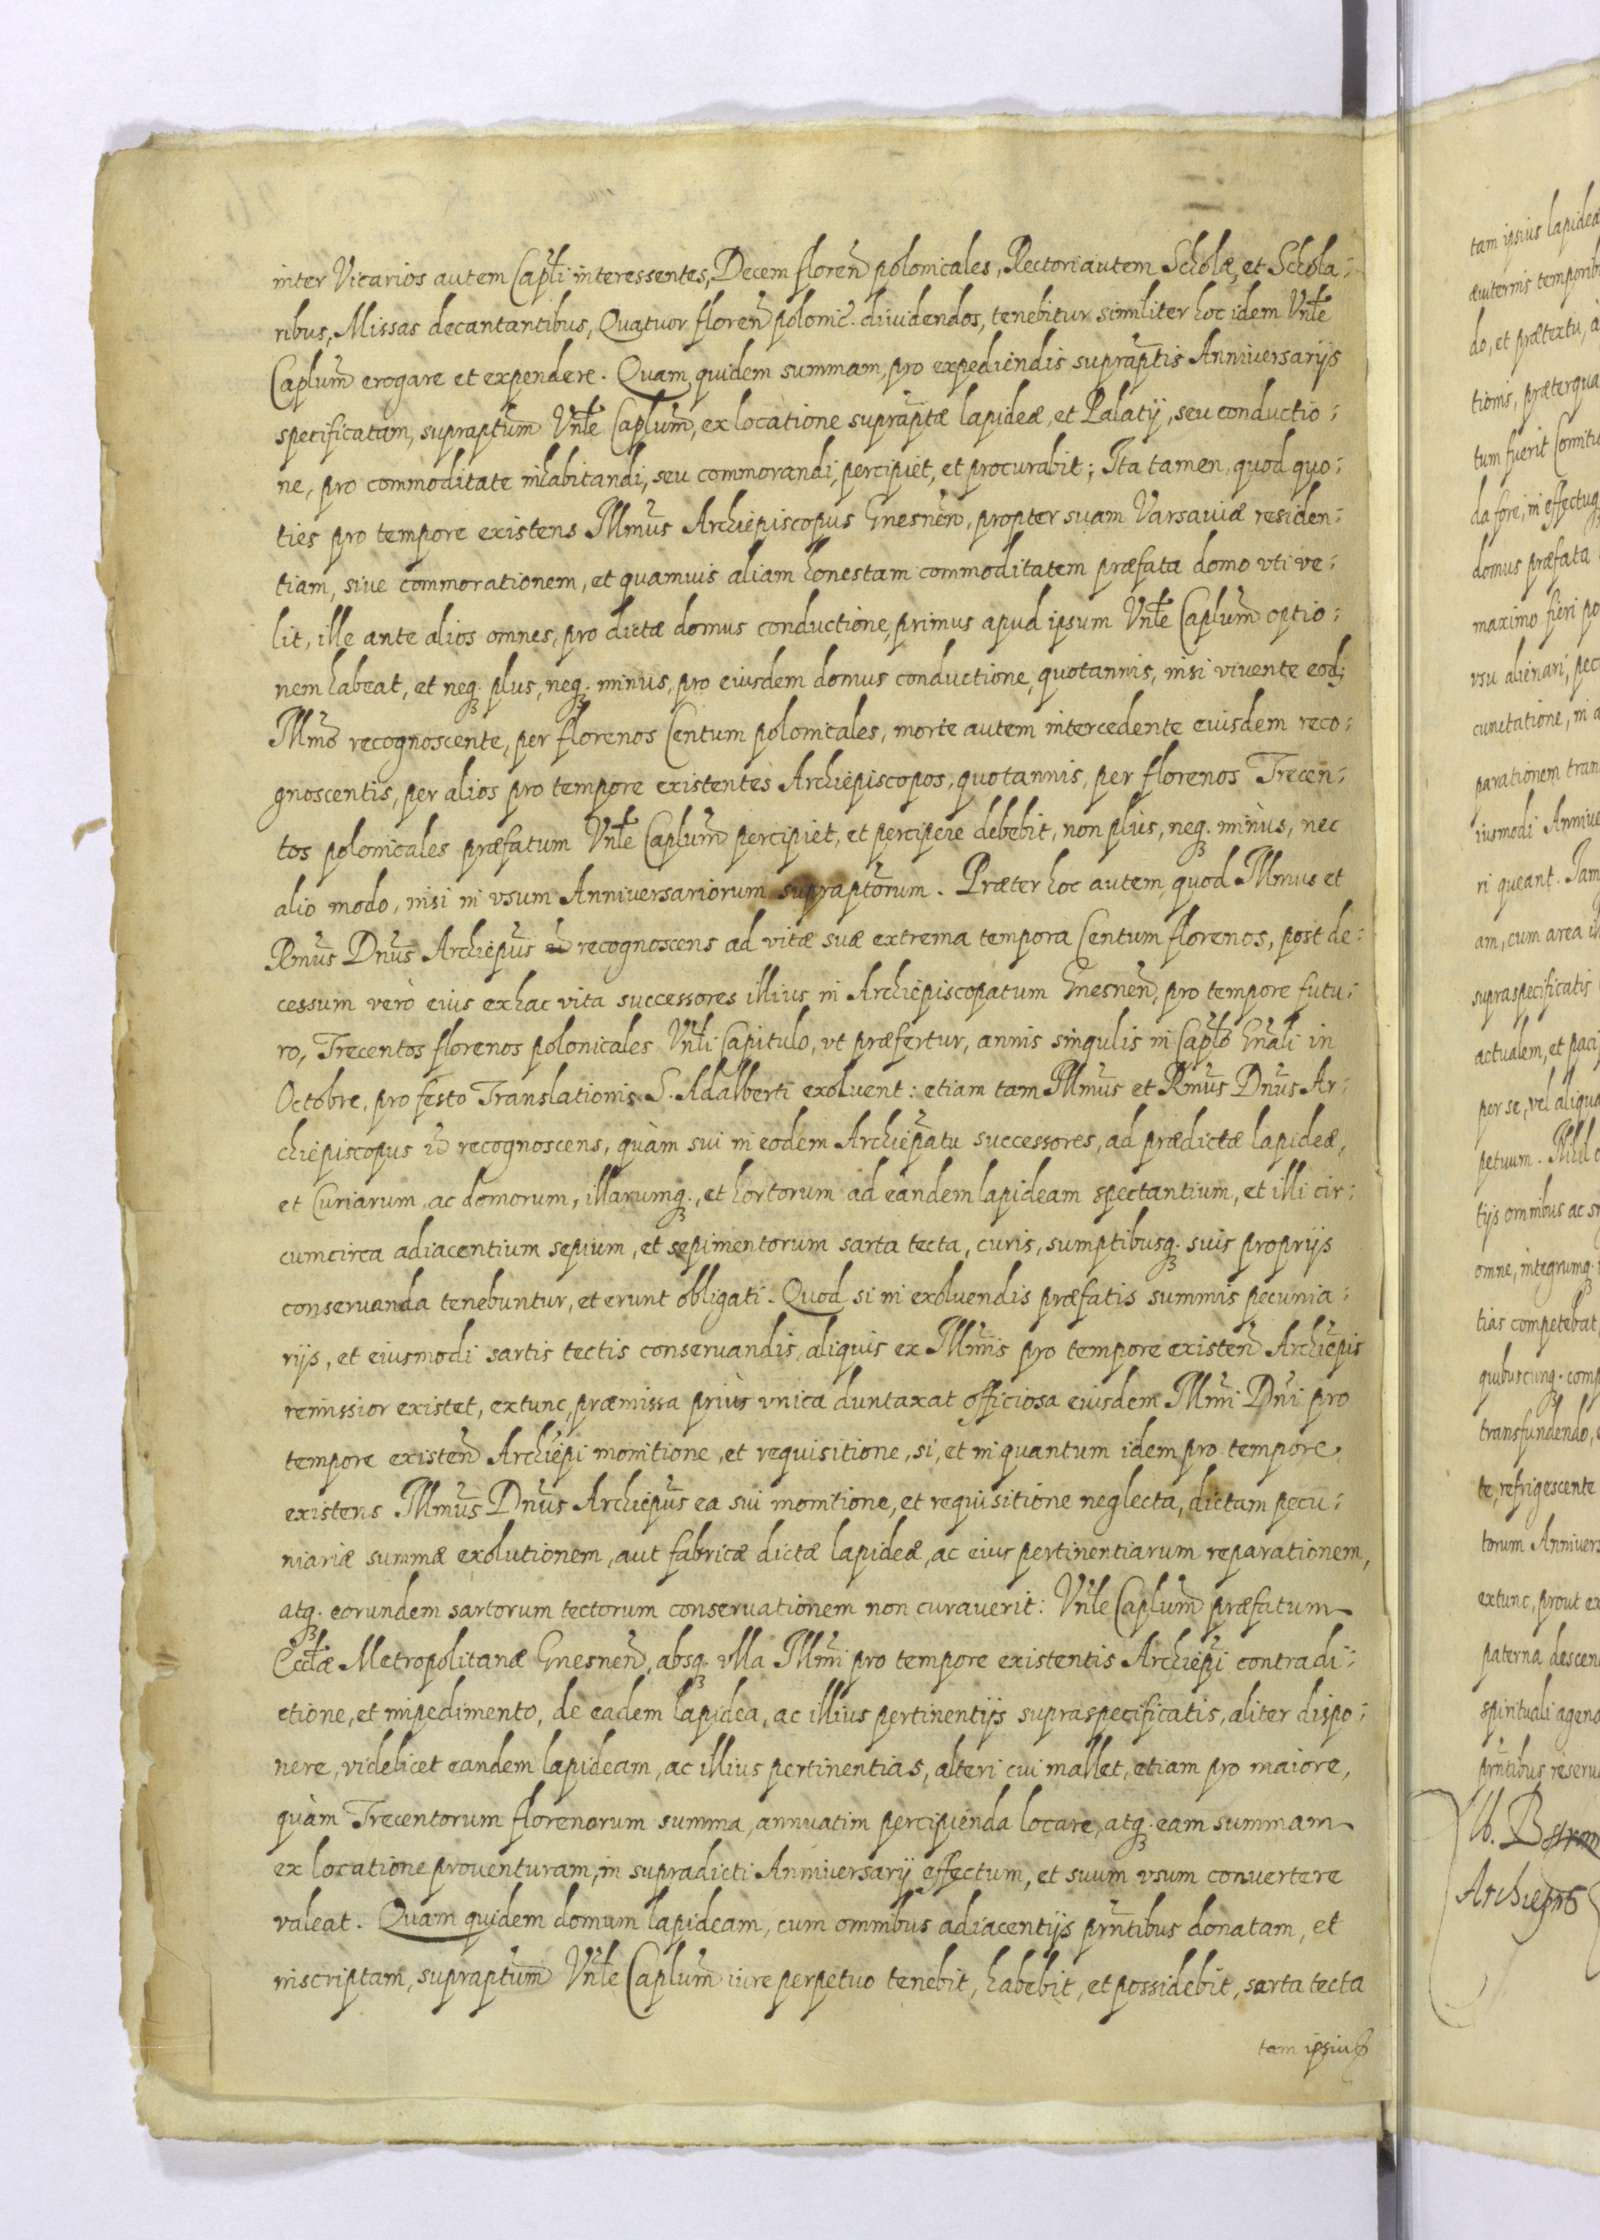 inter Vicarios autem Capłi interessentes, Decem floreñ polonicales, Rectori autem Scholæ, et Schola:
ribus, Missas decantantibus, Quatuor floreñ polonic. diuidendos, tenebitur similiter hoc idem Vnłe
Caplum̃ erogare et expendere. Quam quidem summam, pro expediendis supraptis Anniversarijs
specificatam, supraptum̃ Vnłe Caplum̃, ex locatione supraptæ lapideæ, et Palatij, seu conductio:
ne, pro commoditate inhabitandi, seu commorandi, percipiet, et procurabit; Ita tamen, quod quo:
ties pro tempore existens Illmus Archiepiscopus Gnesneñ, propter suam Varsauiæ residen:
tiam, siue commorationem, et quamuis aliam honestam commoditatem præfata domo vti ve:
lit, ille ante alios omnes, pro dictæ domus conductione, primus apud ipsum Vnłe Caplum̃ optio:
nem habeat, et neq; plus, neq; minus, pro eiusdem domus conductione, quotannis, nisi vivente eod;
Illmo recognoscente, per florenos Centum polonicales, morte autem intercedente euisdem reco:
gnoscentis, per alios pro tempore existentes Archiepiscopos, quotannis, per florenos Trecen:
tos polonicales præfatum Vnłe Caplum̃ percipiet, et percipere debebit, non plùs, neq; minùs, nec
alio modo, nisi in vsum Anniversariorum supraptorum. Præter hoc autem, quod Illmus et
Rmũs Dnũs Archiepũs recognoscens ad vitæ suæ extrema tempora Centum florenos, post de:
cessum verò eius ex hac vita successores illius in Archiepiscopatum Gnesneñ, pro tempore futu:
ro, Trecentos florenos polonicales Vnłi Capitulo, vt præfertur, annis singulis in Capło Gnãli in
Octobre, pro festo Translationis S. Adalberti exoluent: etiam tam Illmũs et Rmũs Dnũs Ar:
chiepiscopus recognoscens, quàm sui in eodem Archiepatu successores, ad prædictæ lapideæ,
et Curiarum, ac domorum, illarumq;, et hortorum ad eandem lapideam spectantium, et illi cir:
cumcirca adiacentium sepium, et sepimentorum sarta tecta, curis, sumptibusq; suis proprijs
conseruanda tenebuntur, et erunt obligati. Quod si in exoluendis præfatis summis pecunia:
rijs, et eiusmodi sartis tectis conseruandis, aliquis ex Illmis pro tempore existeñ Archiepis
remissior existet, extunc, præmissa priùs vnica duntaxat officiosa eiusdem Illmi Dni pro
tempore existeñ Archiepi monitione, et requisitione, si, et in quantum idem pro tempore
existens Illmũs Dnũs Archiepũs ea sui monitione, et requisitione neglecta, dictam pecu:
niariæ summæ exolutionem, aut fabricæ dictæ lapideæ, ac eius pertinentiarum reparationem,
atq; eorundem sartorum tectorum conseruationem non curaverit: Vnłe Caplum̃ præfatum
Ecclæ Metropolitanæ Gnesneñ, absq; vlla Illmi pro tempore existentis Archiepi contradi:
ctione, et impedimento, de eadem lapidea, ac illius pertinentijs supraspecificatis, aliter dispo:
nere, videlicet eandem lapideam, ac illius pertinentias, alteri cui mallet, etiam pro maiore,
quàm Trecentorum florenorum summa, annuatim percipienda locare, atq; eam summam
ex locatione prouenturam, in supradicti Anniversarij effectum, et suum vsum convertere
valeat. Quam quidem domum lapideam, cum omnibus adiacentijs prñtibus donatam, et
inscriptam, supraptum̃ Vnłe Caplum̃ iure perpetuo tenebit, habebit, et possidebit, sarta tecta
tam ipsius
tam ipsius lapideæ
æuiternis temporib
do, et prætextu, a
tionis, præterqua
tum fuerit Comitu
da fore, in effectuq
domus præfata
maximo fieri po
vsu alienari, pec
cunctatione, in a
parationem tran
iusmodi Annive
ri queant. Tam
am, cum area il
supraspecificatis
actualem, et paci
per se, vel aliqua
petuum. Nihil o
tijs omnibus ac si
omne, integrumq;
tias competebat,
quibuscunq; comp
transfundendo, e
te, refrigescente
torum Annivers
extunc, prout ex
paterna descen
spirituali agend
prñtibus reserua
Archieps